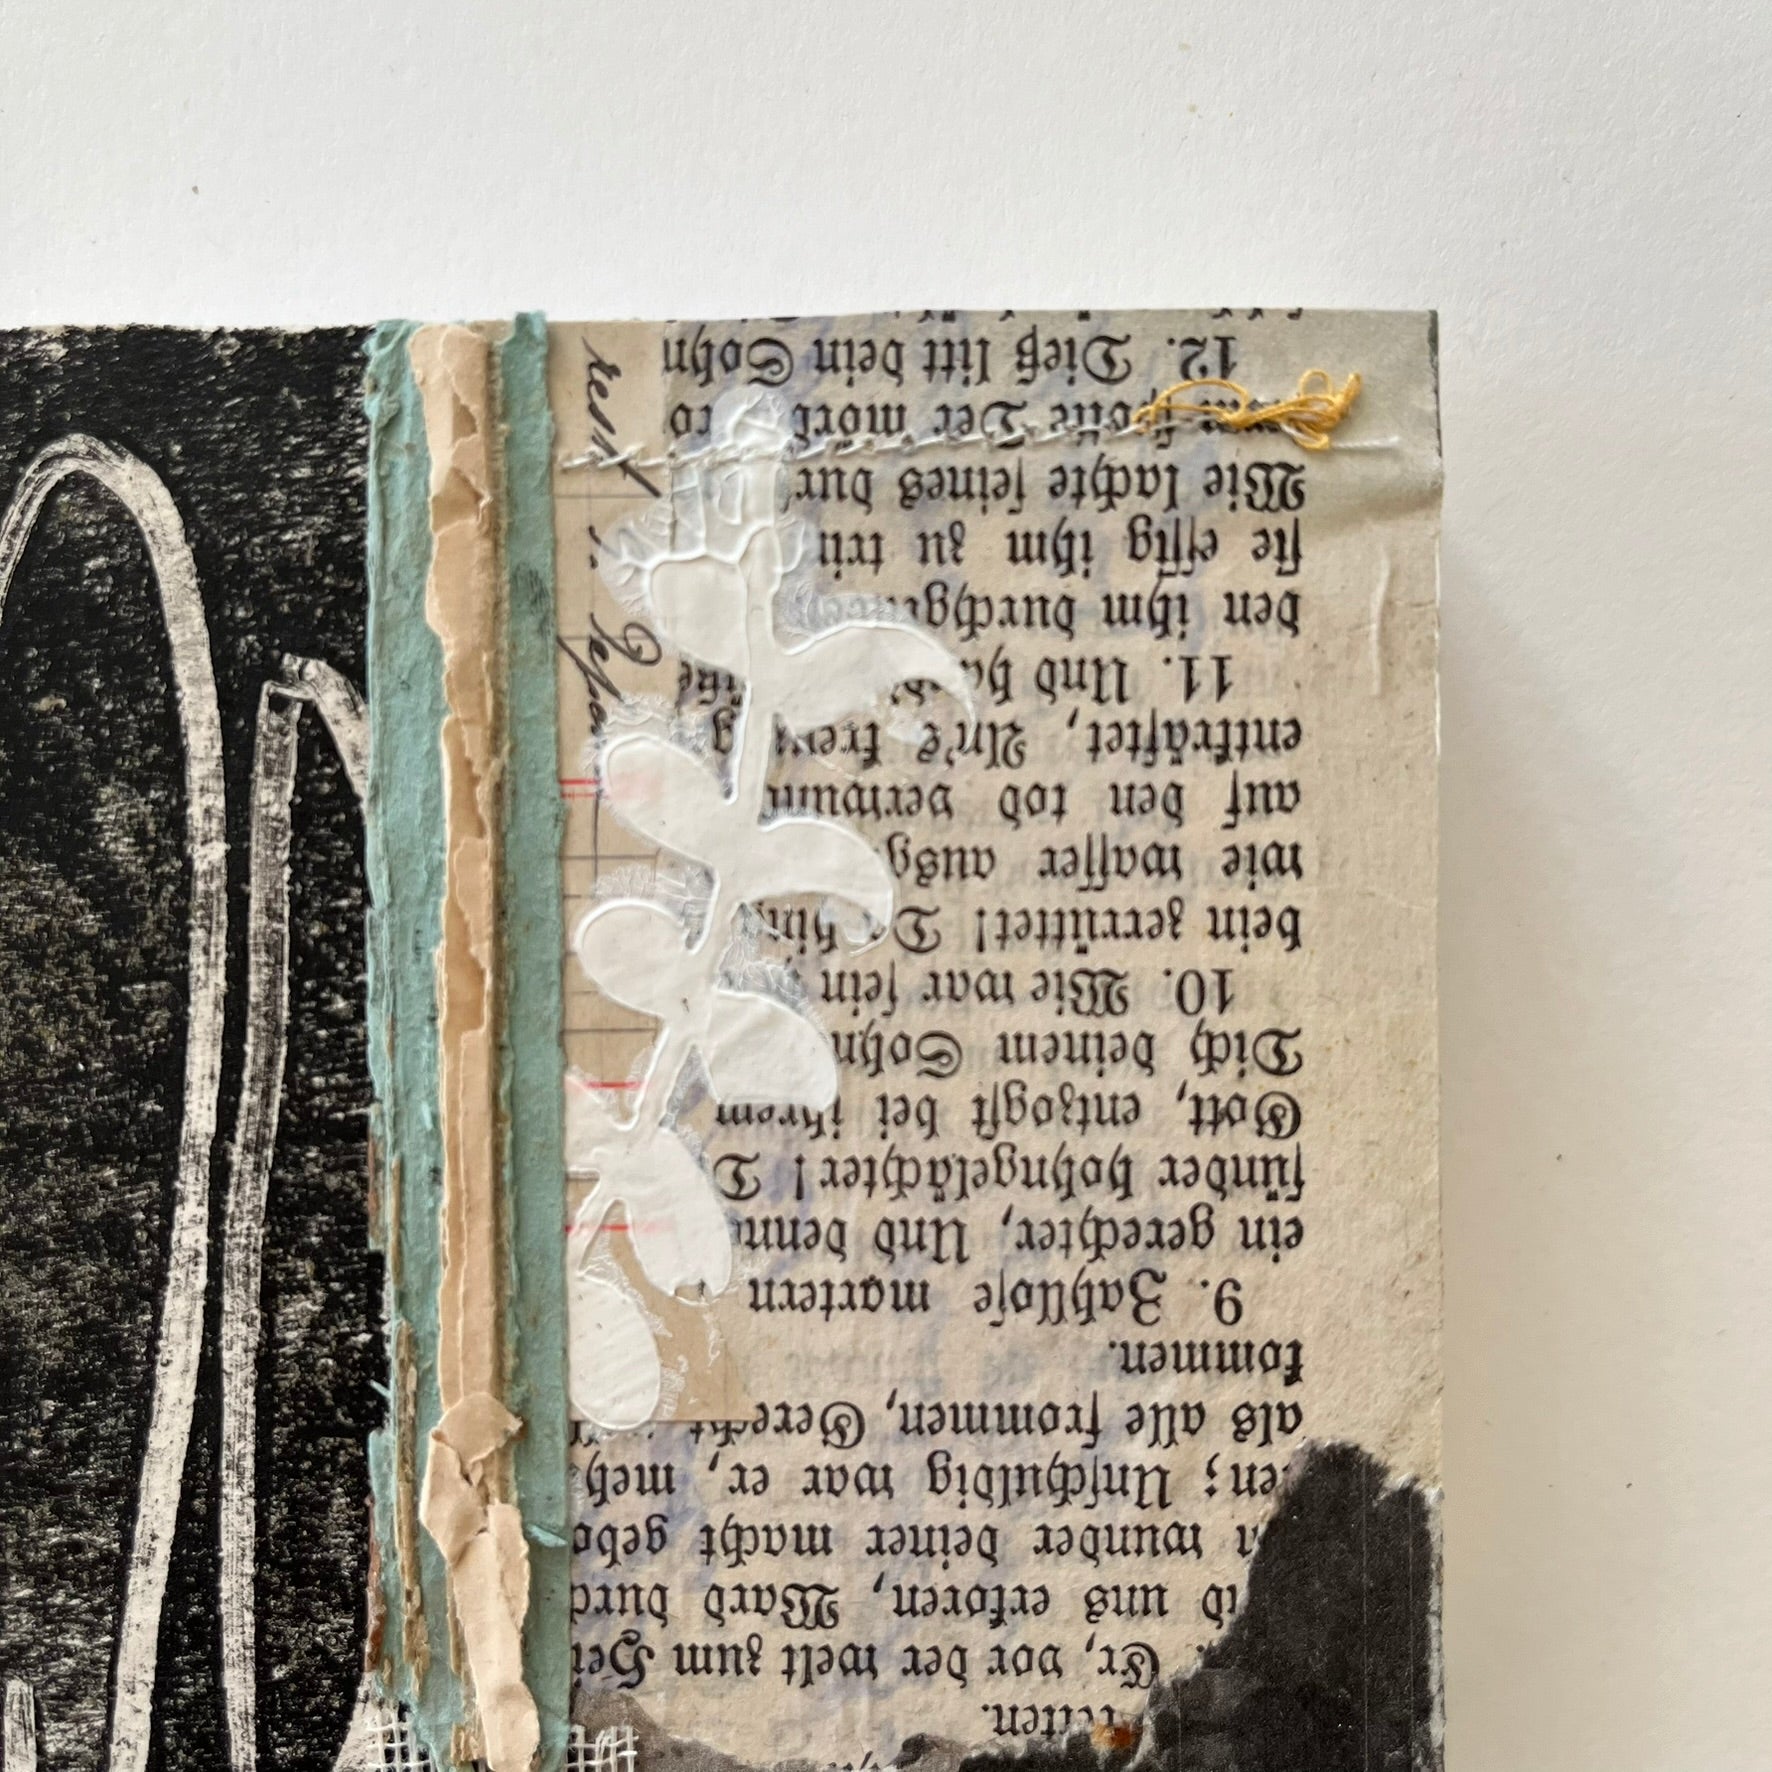 Er, vor der welt zum Hei
uns erkoren, Ward durc
wunder deiner macht gebo
Unschuldig war er, meh
als alle frommen, Gerecht
kommen.
9. Zahllose martern
ein gerechter, Und denn
sünder hohngelächter! D
Gott, entzogst bei ihrem
Dich deinem Sohn
10. Wie war sein
bein zerrüttet! D
wie wasser ausg
auf den tod verwun
entkräftet, An's kreuz g
11. Und ha
den ihm durchg
sie essig ihm zu trin
Wie lachte seines dur
Der mörd
12. Dieß litt dein Sohn